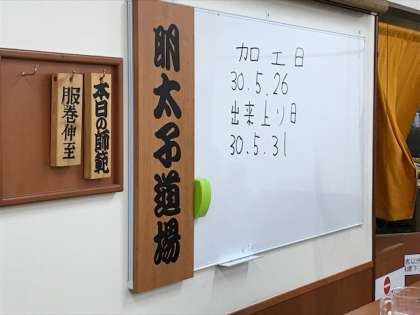 本日の師範
服巻伸至
明太子道場
加工日
30.5.26
出来上り日
30.5.31